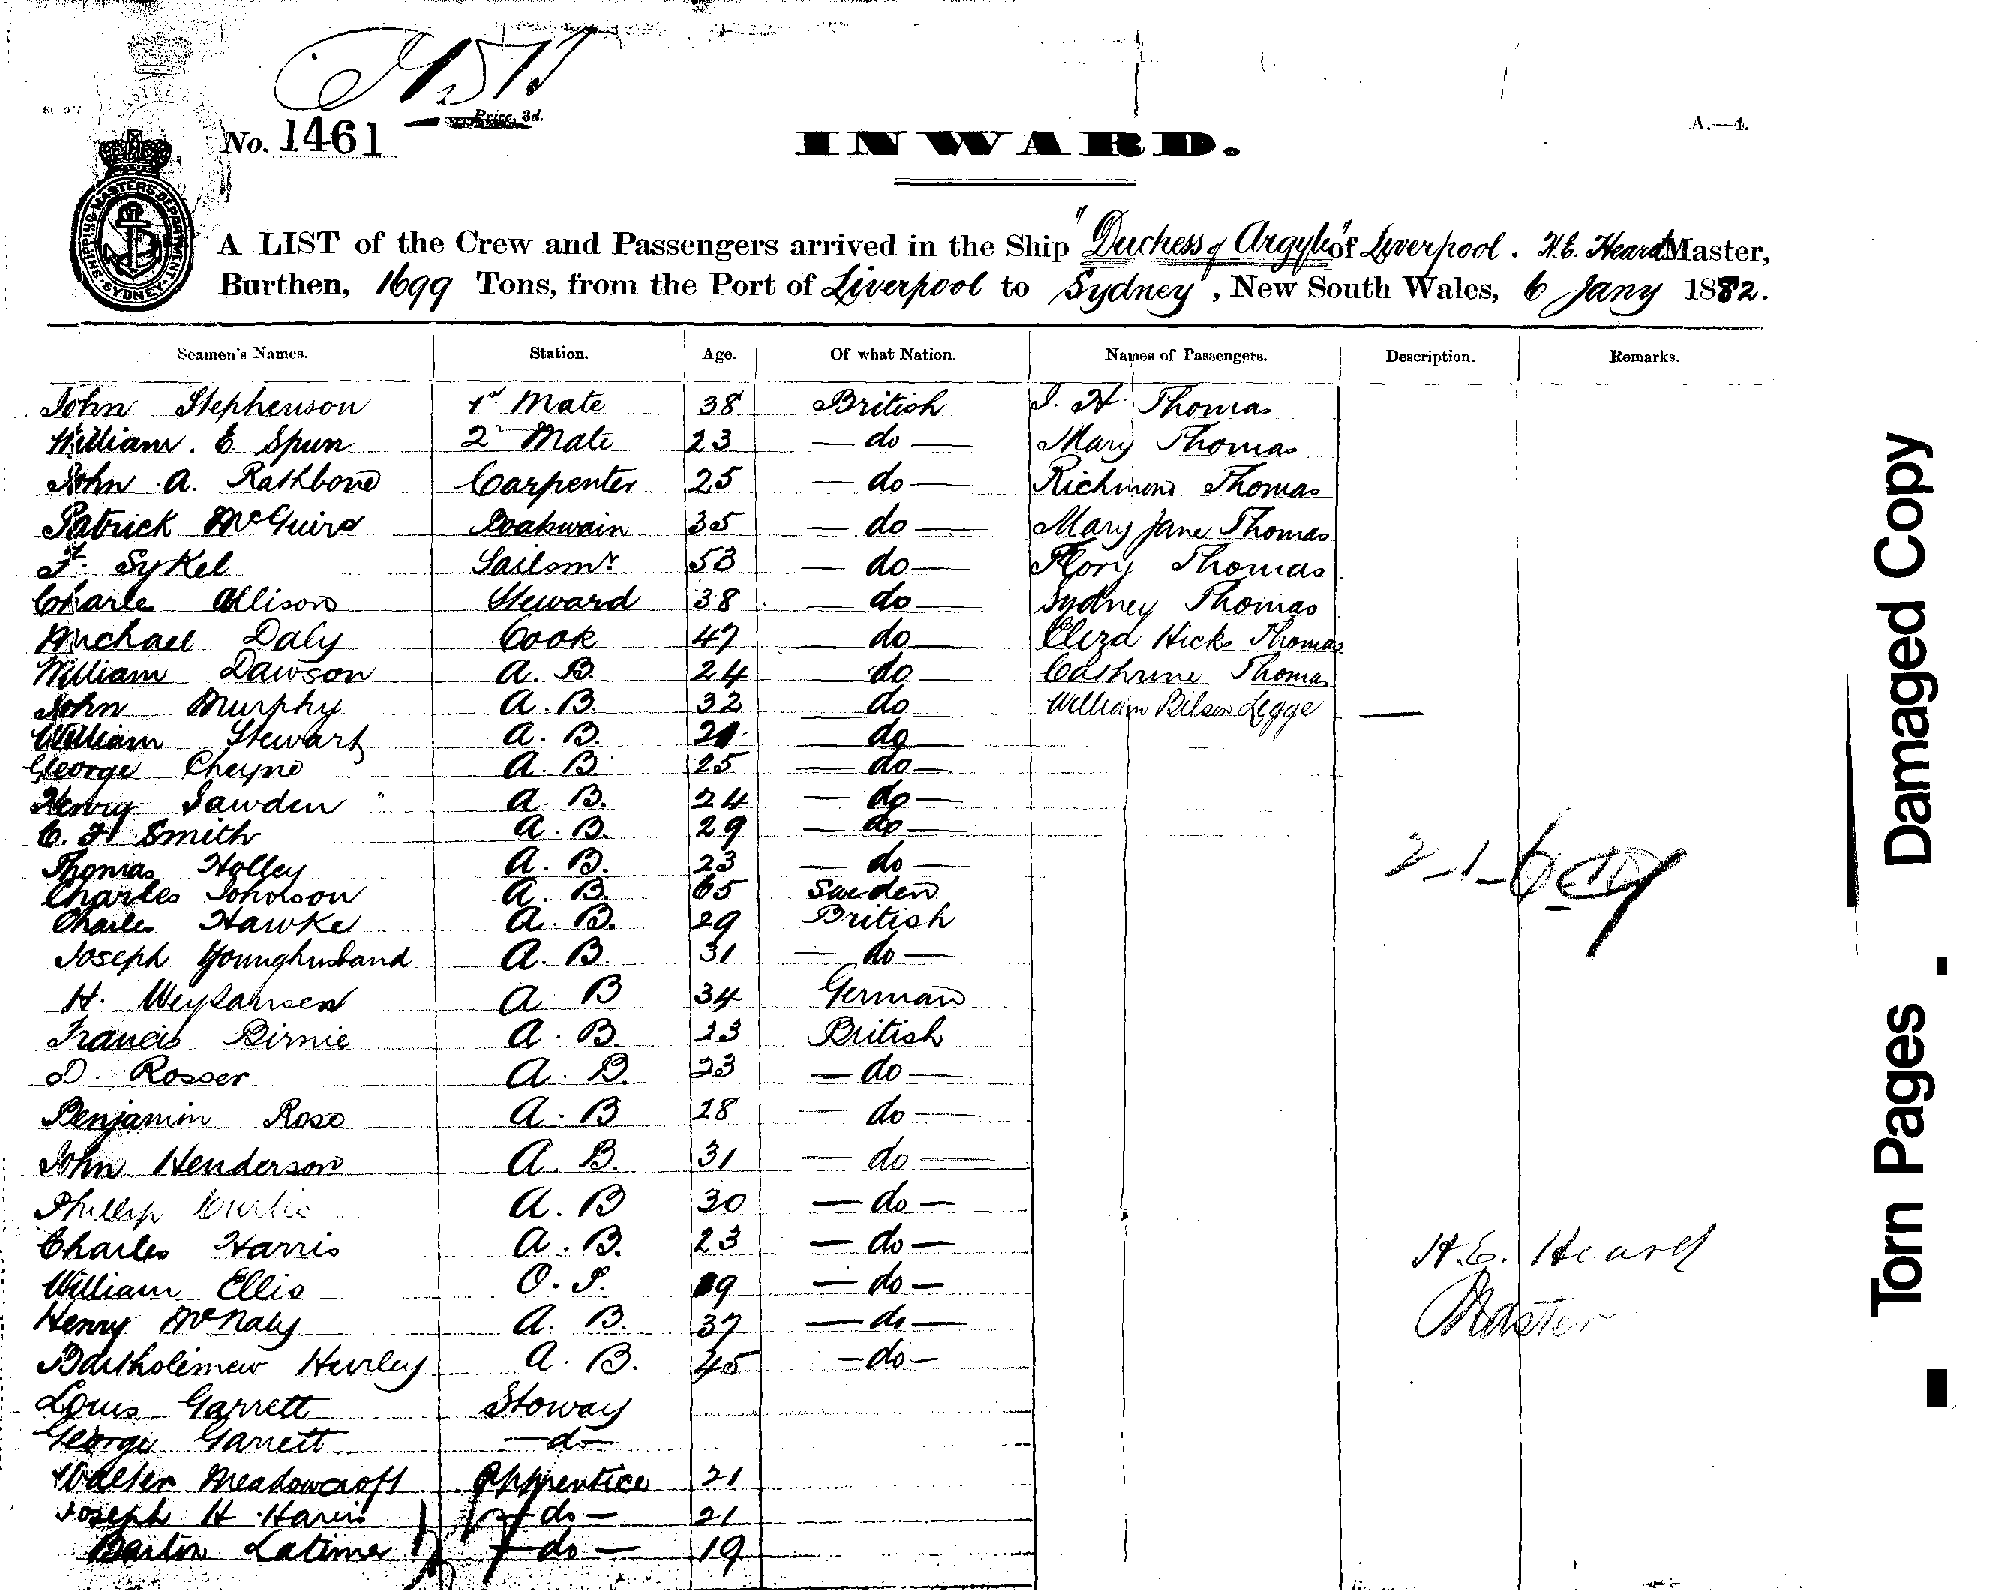 Price, 3d.
No. 1461
A.—4.
INWARD.
SHIPPING MASTERS DEPARTMENT SYDNEY
A LIST of the Crew and Passengers arrived in the Ship "Duchess of Argyle" of Liverpool. H.E. Heard Master,
Burthen, 1699 Tons, from the Port of Liverpool to Sydney, New South Wales, 6 Jany 1882.
Seamen's Names. Station. Age. Of what Nation. Names of Passengers. Description. Remarks.
John Stephenson 1st Mate 38 British J. H. Thomas
William. E Spun 2 Mate 23 — do — Mary Thomas
John A. Rathbone Carpenter 25 — do — Richmond Thomas
Patrick McGuire Boatswain 35 — do — Mary Jane Thomas
F. Sykel Sailsmr 53 — do — Flory Thomas
Charle Allison Steward 38 — do — Sydney Thomas
Michael Daly Cook 47 — do — Eliza Hicks Thomas
William Dawson A. B. 24 — do — Cathrine Thomas
John Murphy A. B. 32 — do — William Bilson Legge —
William Stewart A. B. 21 — do —
George Cheyne A. B. 25 — do —
Henry Sawden A. B. 24 — do —
C. H Smith A. B. 29 — do —
Thomas Holley A. B. 23 — do —
Charles Johnson A. B. 65 Sweden
Charles Hawke A. B. 29 British
Joseph Younghusband A. B. 31 — do —
H. A. B 34 German
Francis Birnie A. B. 23 British
D. Rosser A. B. 23 — do —
Benjamin Rose A. B 28 — do —
John Henderson A. B. 31 — do —
Phillip Curtis A. B 30 — do —
Charles Harris A. B. 23 — do — H. E. Heard
William Ellis O. S. 19 — do —
Henry McNaly A. B. 37 — do — Master
Bartholimew Hurley A. B. 45 — do —
Louis Garrett Stoway
George Garrett — do —
Walter Meadowcroft Apprentice 21
Joseph H Harris — do — 21
Barton Latimer — do — 19
Torn Pages - Damaged Copy